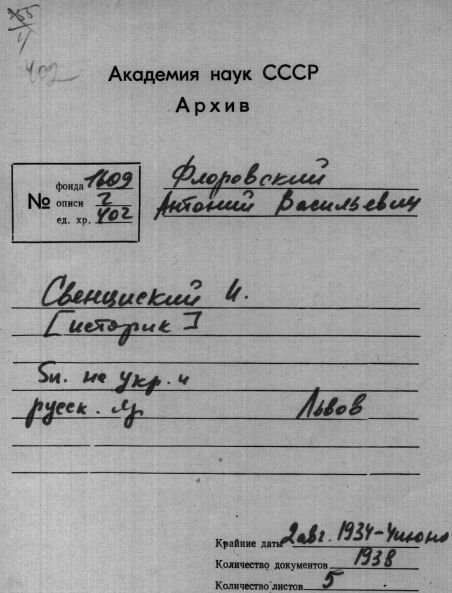 402
Академия наук СССР
Архив
№
фонда 1609
описи 2
ед. хр. 402
Флоровский
Антоний Васильевич
Свенциский И.
[историк]
5п. на укр. и
русск. яз
Львов
Крайние даты 2 авг. 1934-4 июня
1938
Количество документов
Количество листов 5